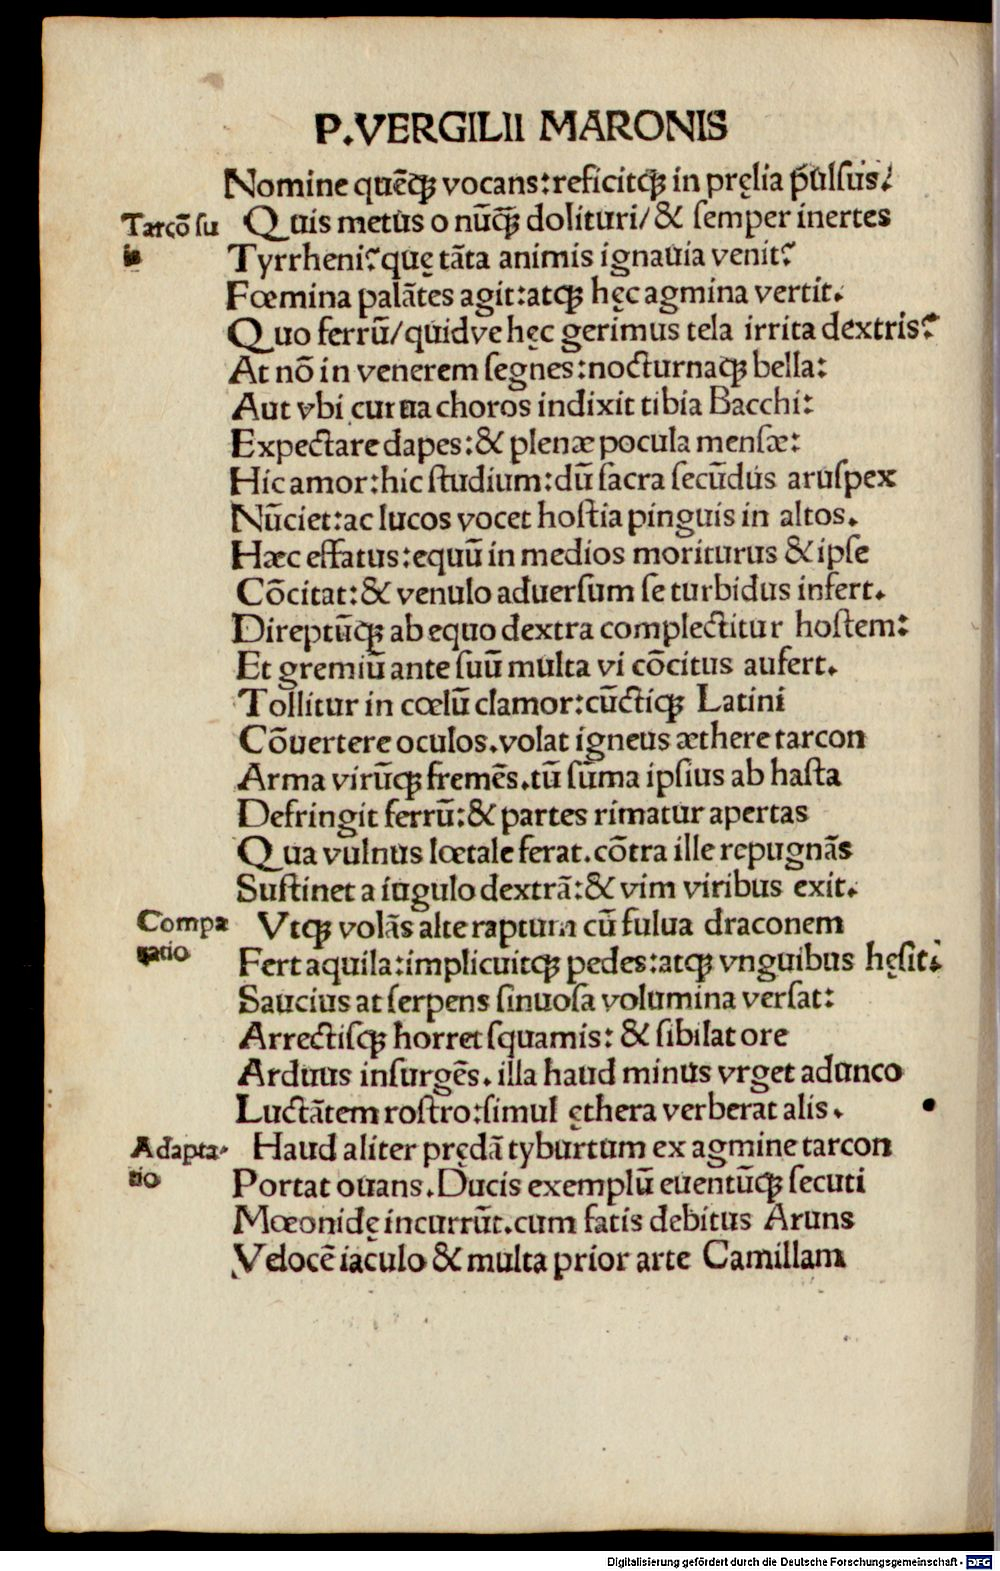 P. VERGILII MARONIS
Nomine quẽq̃ vocans: reficitq̃ in pręlia pulsus.
Tarcõ su
is
Quis metus o nũq̃ dolituri/ & semper inertes
Tyrrheni? quę tãta animis ignauia venit?
Fœmina palãtes agit: atq̃ hęc agmina vertit.
Quo ferrũ/ quidve hęc gerimus tela irrita dextris?
At nõ in venerem segnes: nocturnaq̃ bella:
Aut vbi curua choros indixit tibia Bacchi:
Expectare dapes: & plenæ pocula mensæ:
Hic amor: hic studium: dũ sacra secũdus aruspex
Nũciet: ac lucos vocet hostia pinguis in altos.
Hæc effatus: equũ in medios moriturus & ipse
Cõcitat: & venulo adversum se turbidus infert.
Direptũq̃ ab equo dextra complectitur hostem:
Et gremiũ ante suũ multa vi cõcitus aufert.
Tollitur in cœlũ clamor: cũctiq̃ Latini
Cõuertere oculos. volat igneus æthere tarcon
Arma virũq̃ fremẽs. tũ sũma ipsius ab hasta
Defringit ferrũ: & partes rimatur apertas
Qua vulnus lœtale ferat. cõtra ille repugnãs
Sustinet a iugulo dextrã: & vim viribus exit.
Compa
ratio
Vtq̃ volãs alte raptum cũ fulua draconem
Fert aquila: implicuitq̃ pedes: atq̃ vnguibus hęsit.
Saucius at serpens sinuosa volumina versat:
Arrectisq̃ horret squamis: & sibilat ore
Arduus insurgẽs. illa haud minus vrget adunco
Luctãtem rostro: simul ęthera verberat alis.
Adapta-
tio
Haud aliter prędã tyburtum ex agmine tarcon
Portat ouans. Ducis exemplũ euentũq̃ secuti
Mœonidę incurrũt. cum fatis debitus Aruns
Velocẽ iaculo & multa prior arte Camillam
Digitalisierung gefördert durch die Deutsche Forschungsgemeinschaft - DFG